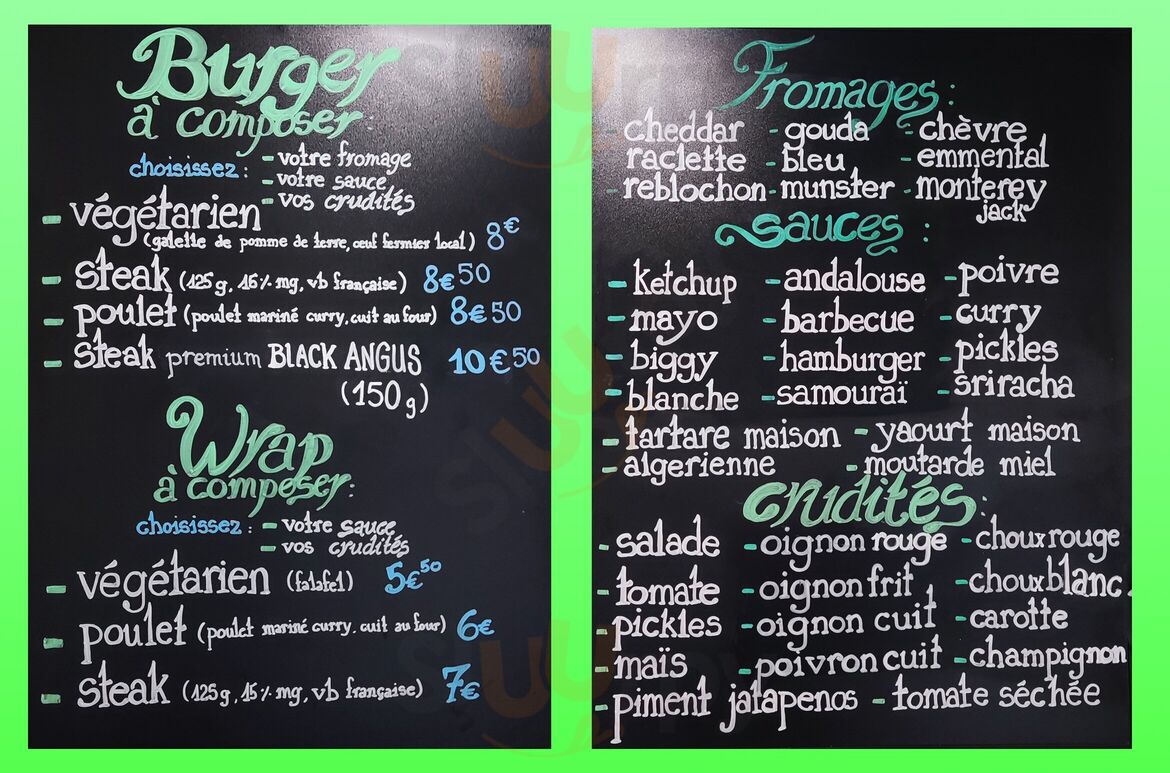 Burger
à composer:
choisissez: - votre fromage
- votre sauce
- vos crudités
- végétarien
(galette de pomme de terre, œuf fermier local) 8€
- steak (125g, 15% mg, vb française) 8€50
- poulet (poulet mariné curry, cuit au four) 8€50
- Steak premium BLACK ANGUS 10€50
(150g)
Wrap
à composer:
choisissez: - votre sauce
- vos crudités
- végétarien (falafel) 5€50
- poulet (poulet mariné curry, cuit au four) 6€
- steak (125g, 15% mg, vb française) 7€
Fromages:
- cheddar - gouda - chèvre
raclette - bleu - emmental
- reblochon - munster - monterey
jack
sauces:
- ketchup - andalouse - poivre
- mayo - barbecue - curry
- biggy - hamburger - pickles
- blanche - samouraï - sriracha
- tartare maison - yaourt maison
- algerienne - moutarde miel
crudités:
- salade - oignon rouge - choux rouge
- tomate - oignon frit - choux blanc.
- pickles - oignon cuit - carotte
- maïs - poivron cuit - champignon
- piment jalapenos - tomate séchée